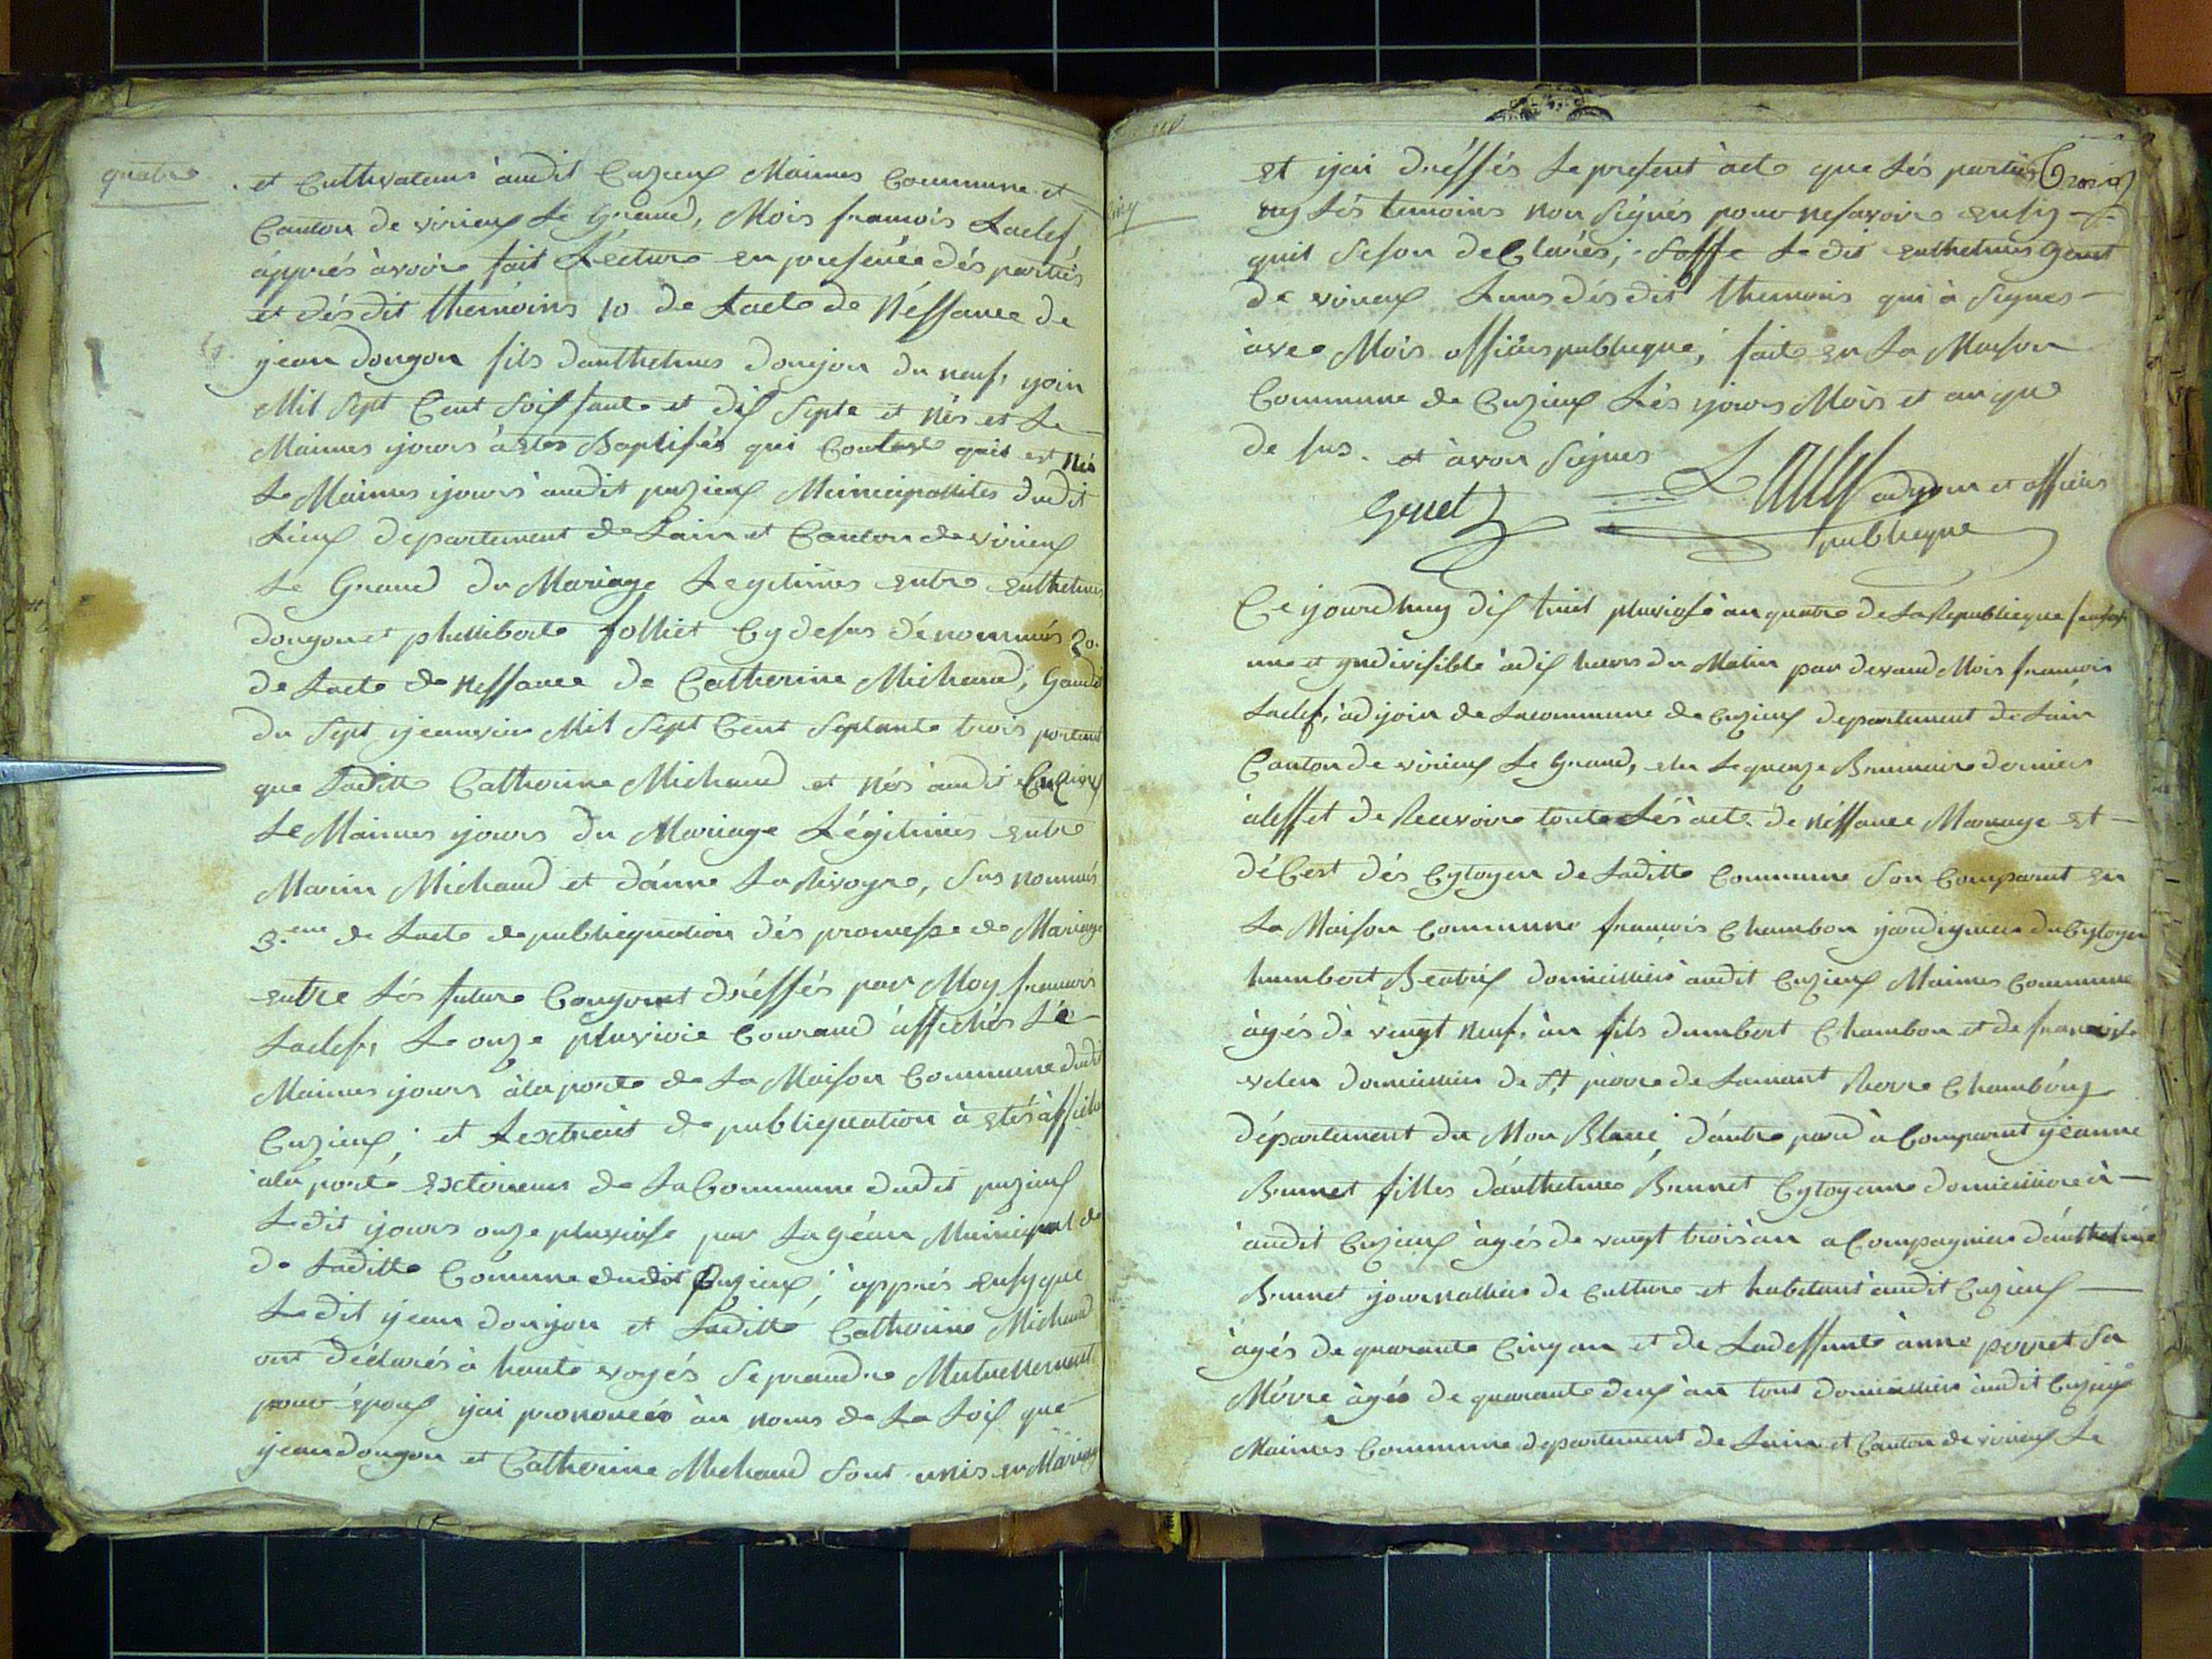 quatre
et Cultivateurs audit Cuzieux Maimes Commune et
Canton de virieux Le Grand, Mois francois Laclef,
apprés avoire fait Lecture en presence dés parties
et dés dit themoins 1o de Lacte de Néssance de
jean dongon fils danthelmes donjon du neuf, yoin
Mil Sept Cent Soissante et dix Septe et Nés et Le
Maimes yours à etes Baptisés qui Conteste quil est Nés
Le Maimes yours audit puzieux Municipallites dudit
Lieux departement de Lain et Canton de virieux
Le Grand du Mariage Legitimes entre enthelmes
dongon et philliberte folliet Cy desus dénommés 2o.
de Lacte de Nessance de Catherine Michaud,
du Sept yeanvier Mil Sept Cent Septante trois portant
que Laditte Catherine Michaud et Nés audit Cuzieux
Le Maimes yours du Mariage Légitimes entre
Marin Michaud et dánne La Rivoyre, Sus nommés
3.eme de Lacte de publiquation dés promesse de Mariage
entre Lés future Conyoint dréssés par Moy francois
Laclef, Le onze pluvioie Courand affichés Le
Maimes yours àla porte de La Maison Commune dudit
Cuzieux; et Lextrait de publiquation à etés affiche
àla porte exterieure de La Commune dudit puzieux
Ledit yours onze pluviose par La géan Municipal de
de Laditte Comune dudit Cuzieux; apprés ensy que
Ledit yean donjon et Laditte Catherine Michaud
ont déclarés à haute voyés Seprandre Mutuellement
pour époux yai prononcés àu noms de La Loix que
yean dongon et Catherine Michaud Sont unis en Mariage
Cinq
et yai dréssés Le present àcte que Lés parties
ny Lés temoins non Signés pour ne savoire ensy
quil Seson deClarés; Soffe Le dit enthelmes Genet
de virieux Luns dés dit themoins qui à Signes
àvec Mois officiers publieque, faite en La Maison
Commune de Cuzieux Lés yours Mois et an que
de sus. et àvon Signes
Genet Laclef adyoin et officiers
publieque
Ce yourdhuy dix huit pluviose àn quatre de La Republieque fransois
une et yndivisible àdix heures du Matin par devand Mois francois
Laclef, àdjoin de Lacommune de Cuzieux departement de Lain
Canton de virieux Le Grand, elu Le quenze Brumaire derniers
àleffet de Recevoire toute Lés acte de Néssance Mariage et
déCest dés Cytoyen de Laditte Commune Son Comparut en
La Maison Commune francois Chambon yardignier du Cytoyen
humbert Beatrix domicilliers audit Cuzieux Maimes Commune
àgés de vaingt neuf, àn fils dumbert Chambon et de francoise
velen domicilliers de St pierre de Lamant
département du Mon Blanc, dautre pard à Comparut yeanne
Brunet filles danthelmes Brunet Cytoyenne domicilliere à
àudit Cuzieux àgés de vaingt trois àn aCompagniers danthelme
Brunet yournalliers de Culture et habitant àudit Cuzieux
àgés de quarante Cinq an et de La deffunte ànne perret Sa
Mérre àgés de quarante deux àn tout domicilliers àudit Cuzieux
Maimes Commune departement de Lain et Canton de virieux Le